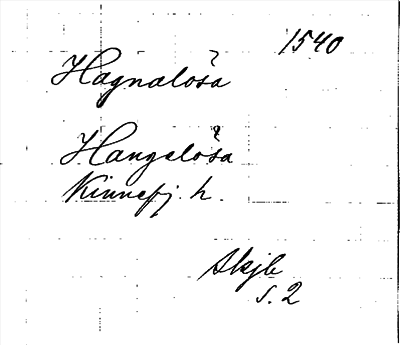 1540
Hagnalösa
Hangelösa
Kinnefj. h.
Skjb
s. 2